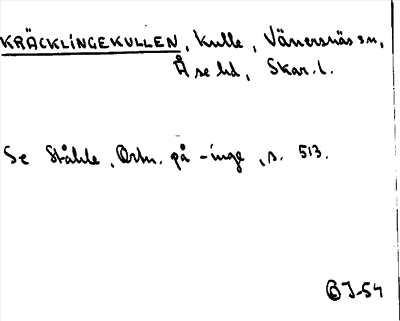 KRÄCKLINGEKULLEN, kulle, Vänersnäs sn,
Åse hd, Skar. l.
Se Ståhle, Ortn. på -inge, s. 513.
BJ-54